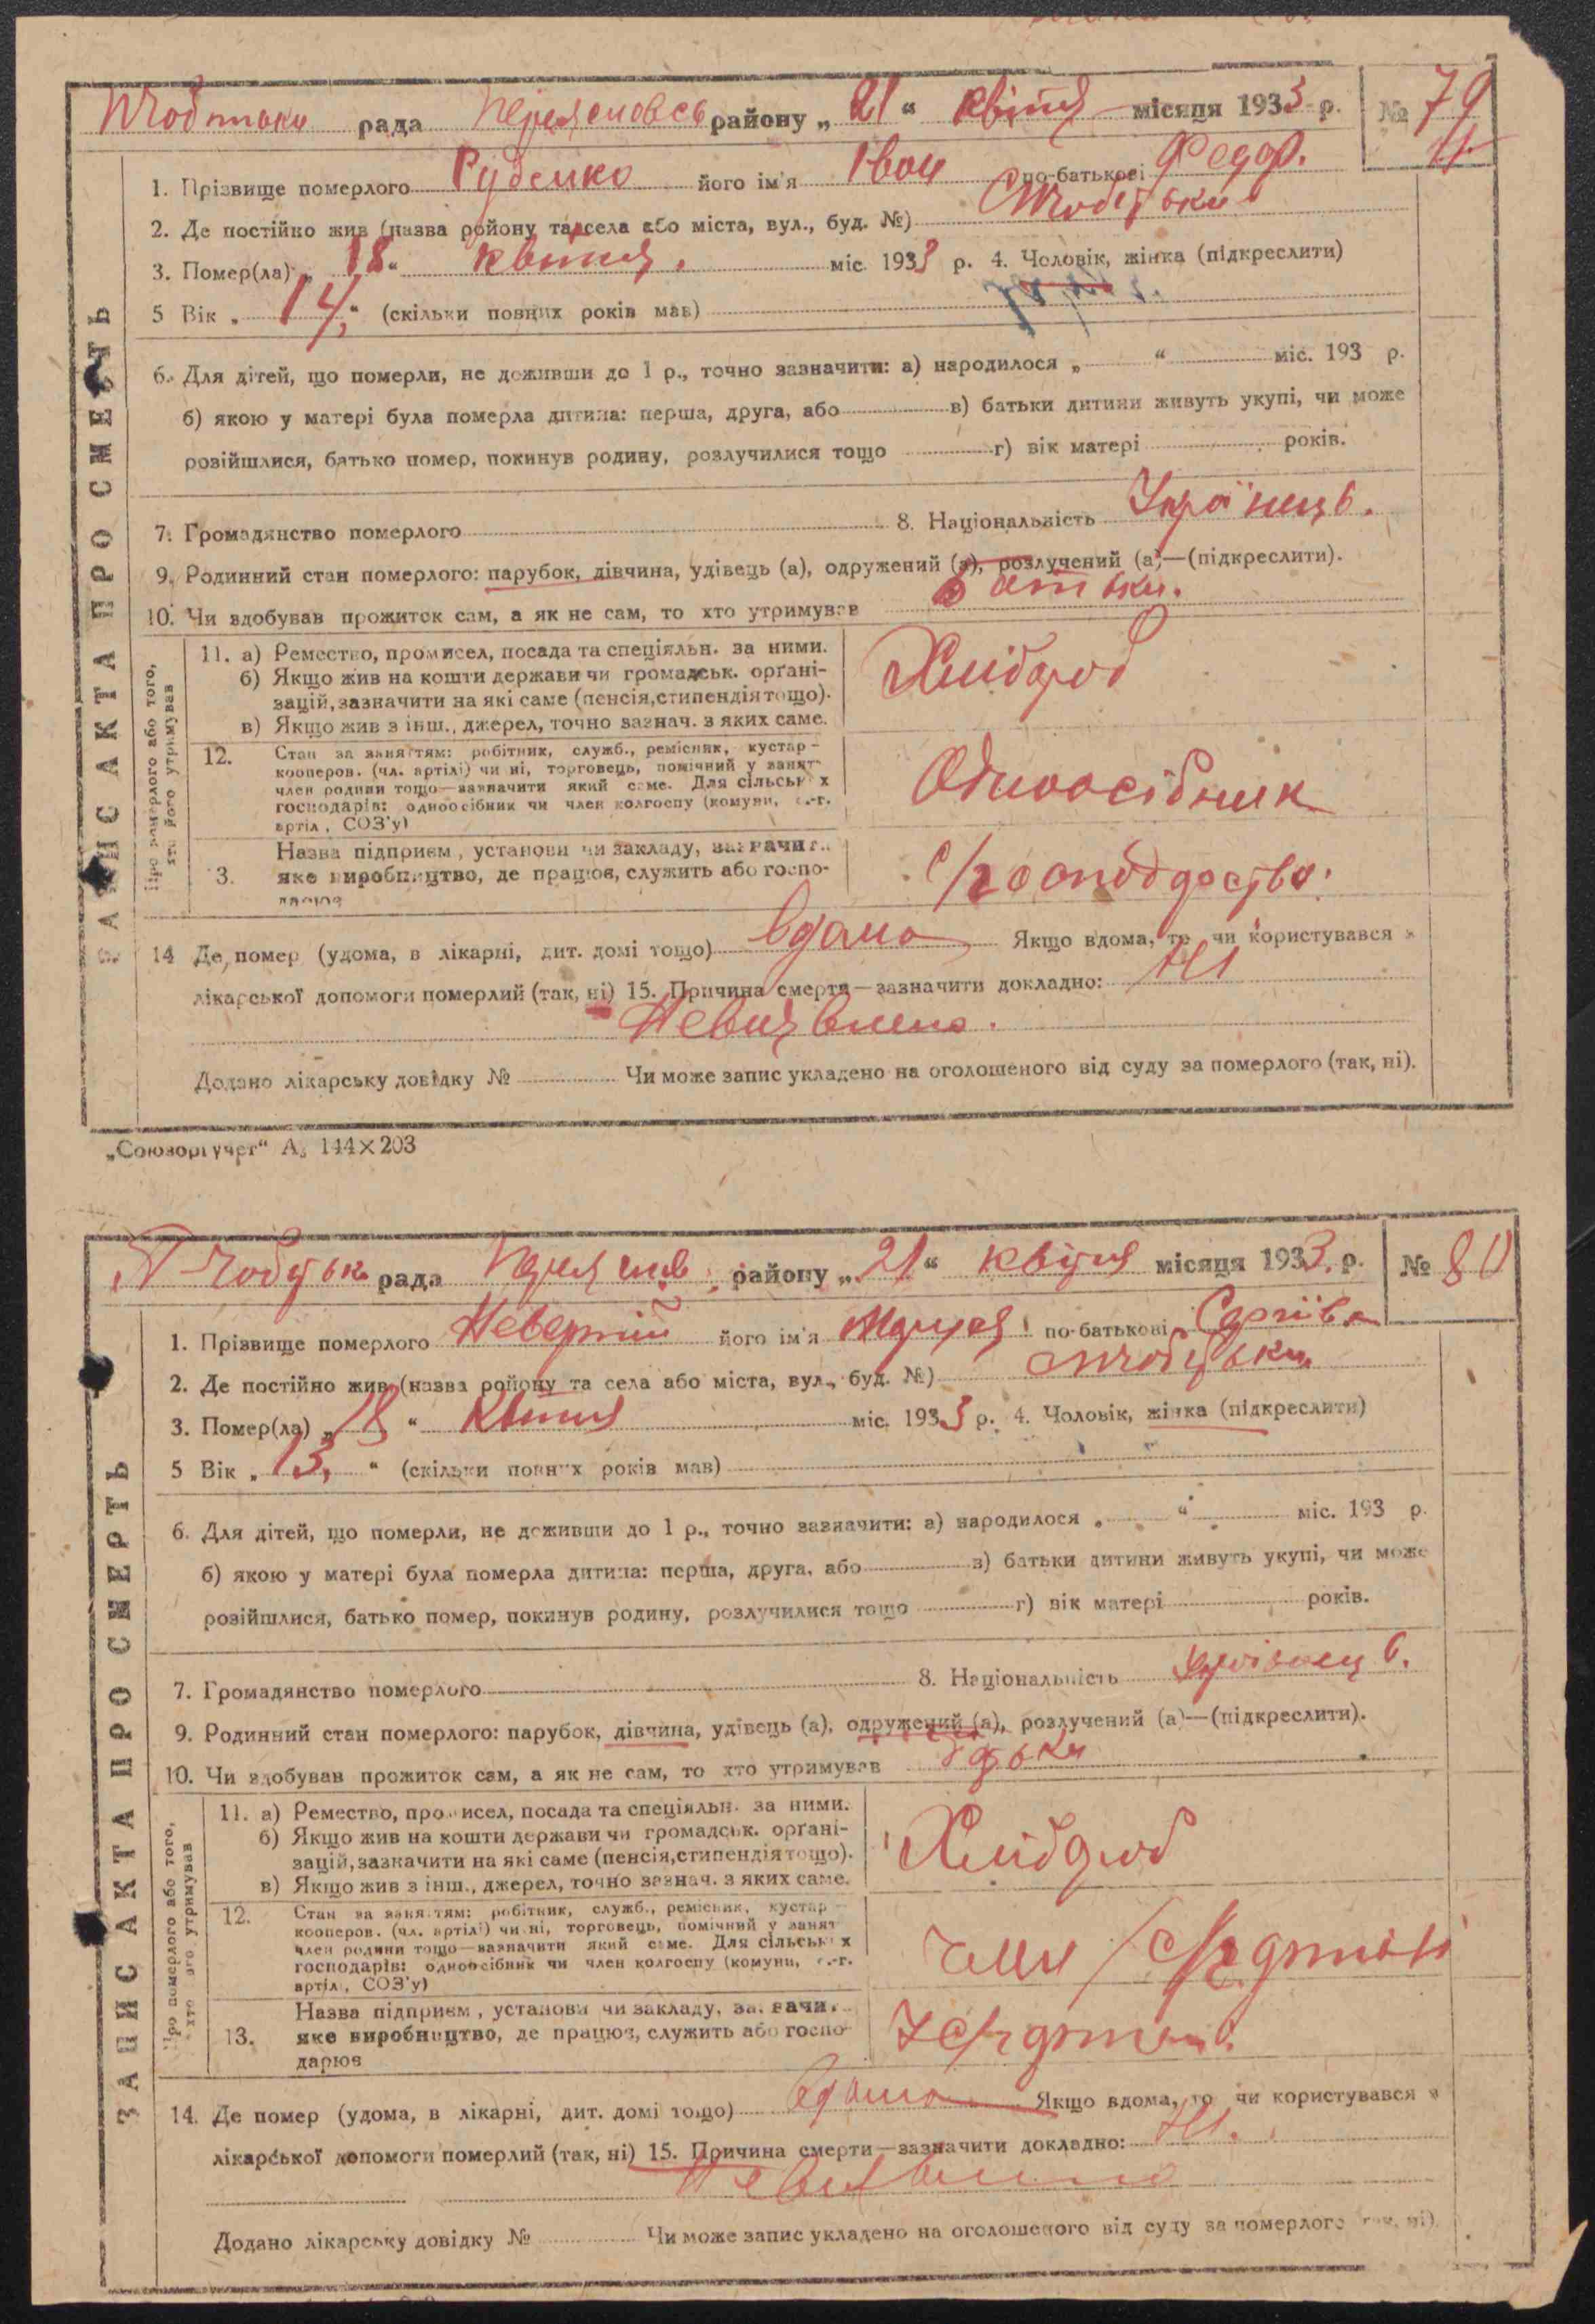 рада Переяславсь району „ 21 “ квітня місяця 1933 р. № 79
1. Прізвище померлого Руденко його ім'я Іван по-батькові Федор.
2. Де постійно жив (назва району та села або міста, вул., буд. №)
3. Помер(ла) „ 18 “ квітня. міс. 1933 р. 4. Чоловік, жінка (підкреслити)
5 Вік „ 14, “ (скільки повних років мав)
6. Для дітей, що померли, не доживши до 1 р., точно зазначити: а) народилося „ “ міс. 193 р.
б) якою у матері була померла дитина: перша, друга, або в) батьки дитини живуть укупі, чи може
розійшлися, батько помер, покинув родину, розлучилися тощо г) вік матері років.
7. Громадянство померлого 8. Національність Українець.
9. Родинний стан померлого: парубок, дівчина, удівець (а), одружений (а), розлучений (а)—(підкреслити).
10. Чи здобував прожиток сам, а як не сам, то хто утримував батьки.
ЗАПИС АКТА ПРО СМЕРТЬ
Про померлого або того,
хто його утримував
11. а) Ремество, промисел, посада та спеціяльн. за ними.
б) Якщо жив на кошти держави чи громадськ. орґані-
зацій, зазначити на які саме (пенсія, стипендія тощо).
в) Якщо жив з інш., джерел, точно зазнач. з яких саме.
Хлібороб
12. Стан за заняттям: робітник, служб., ремісник, кустар-
кооперов. (чл. артілі) чи ні, торговець, помічний у занят
член родини тощо—зазначити який саме. Для сільськ х
господарів: одноосібник чи член колгоспу (комуни, с.-г.
артіл, СОЗ'у)
Одноосібник
3. Назва підприєм, установи чи закладу, зазначит.
яке виробництво, де працює, служить або госпо-
дарює
С/господарство.
14 Де помер (удома, в лікарні, дит. домі тощо) вдома Якщо вдома, то чи користувався з
лікарської допомоги померлий (так, ні) 15. Причина смерти—зазначити докладно: Ні
Невиявлено.
Додано лікарську довідку № Чи може запис укладено на оголошеного від суду за померлого (так, ні).
„Союзоргучет“ А₅ 144×203
рада Переяслав району „ 21 “ квітня місяця 1933 р. № 80
1. Прізвище померлого його ім'я Маруся по-батькові Сергіївн
2. Де постійно жив (назва району та села або міста, вул., буд. №)
3. Помер(ла) „ 18 “ квітня міс. 1933 р. 4. Чоловік, жінка (підкреслити)
5 Вік „ 13, “ (скільки повних років мав)
6. Для дітей, що померли, не доживши до 1 р., точно зазначити: а) народилося „ “ міс. 193 р.
б) якою у матері була померла дитина: перша, друга, або в) батьки дитини живуть укупі, чи може
розійшлися, батько помер, покинув родину, розлучилися тощо г) вік матері років.
7. Громадянство померлого 8. Національність
9. Родинний стан померлого: парубок, дівчина, удівець (а), одружений (а), розлучений (а)—(підкреслити).
10. Чи здобував прожиток сам, а як не сам, то хто утримував батьки
ЗАПИС АКТА ПРО СМЕРТЬ
Про померлого або того,
хто його утримував
11. а) Ремество, промисел, посада та спеціяльн. за ними.
б) Якщо жив на кошти держави чи громадськ. орґані-
зацій, зазначити на які саме (пенсія, стипендія тощо).
в) Якщо жив з інш., джерел, точно зазнач. з яких саме.
Хлібороб
12. Стан за заняттям: робітник, служб., ремісник, кустар-
кооперов. (чл. артілі) чи ні, торговець, помічний у занят
член родини тощо—зазначити який саме. Для сільськ х
господарів: одноосібник чи член колгоспу (комуни, с.-г.
артіл, СОЗ'у)
член с/г артілі
13. Назва підприєм, установи чи закладу, зазначит.
яке виробництво, де працює, служить або госпо-
дарює
У с/г артілі.
14. Де помер (удома, в лікарні, дит. домі тощо) вдома Якщо вдома, то чи користувався з
лікарської допомоги померлий (так, ні) 15. Причина смерти—зазначити докладно: Ні.
Невиявлено
Додано лікарську довідку № Чи може запис укладено на оголошеного від суду за померлого (так, ні).